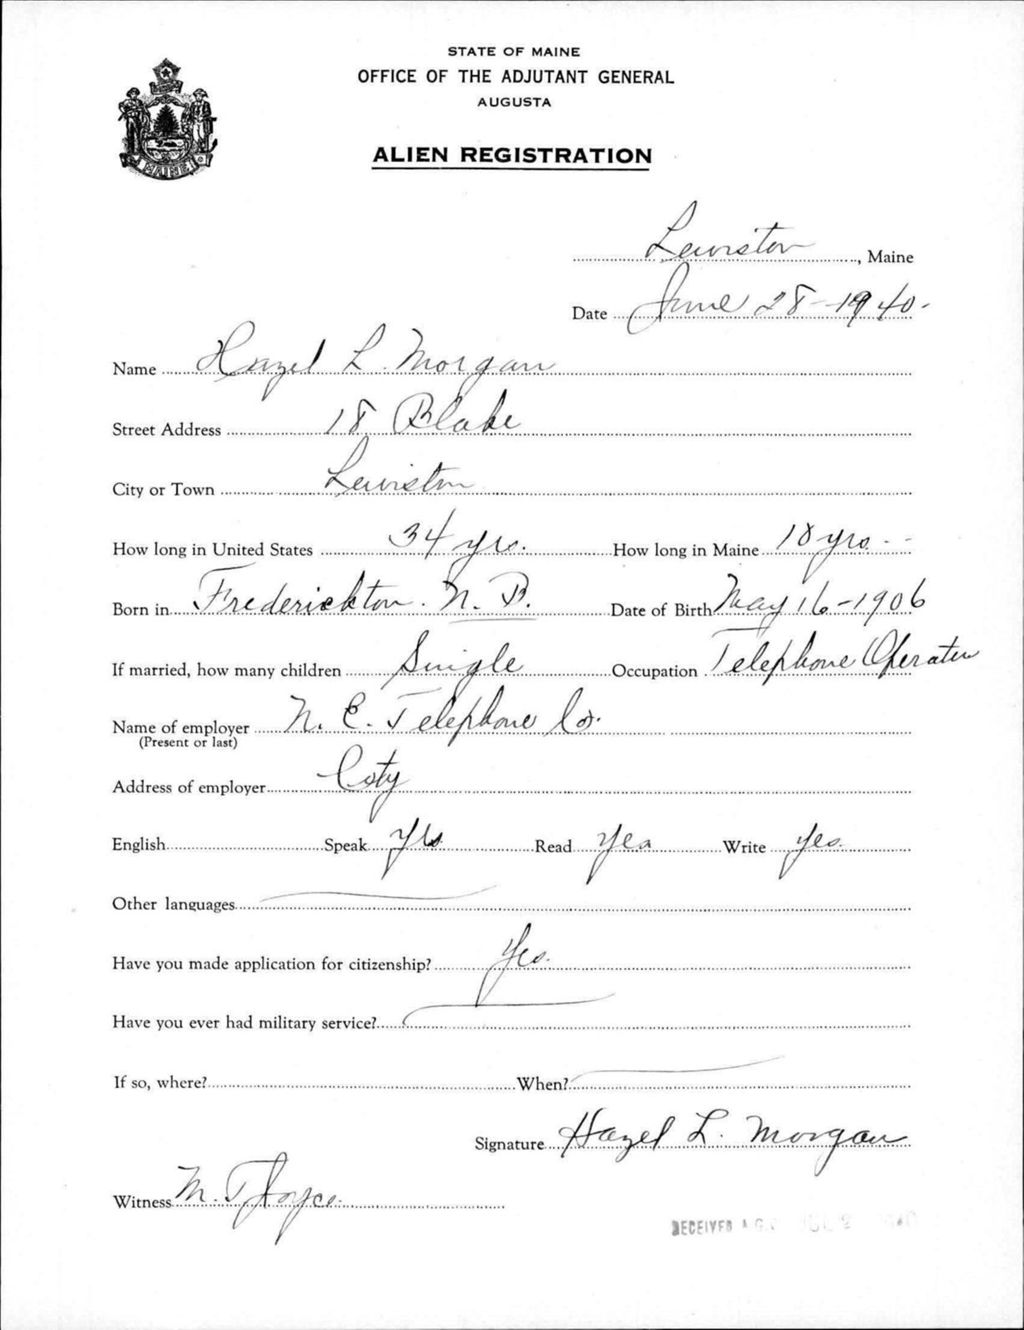 STATE OF MAINE
OFFICE OF THE ADJUTANT GENERAL
AUGUSTA
MAINE
ALIEN REGISTRATION
Lewiston, Maine
Date June 28-1940-
Name Hazel L. Morgan
Street Address 18 Blake
City or Town Lewiston
How long in United States 34 yrs. How long in Maine 18 yrs.
Born in Frederickton. N. B. Date of Birth May 16-1906
If married, how many children Single Occupation Telephone Operator
Name of employer N. E. Telephone Co.
(Present or last)
Address of employer City
English Speak Yes Read Yes Write Yes.
Other languages
Have you made application for citizenship? Yes.
Have you ever had military service?
If so, where? When?
Signature Hazel L. Morgan
Witness M. T. Joyce.
RECEIVED A.G.O.